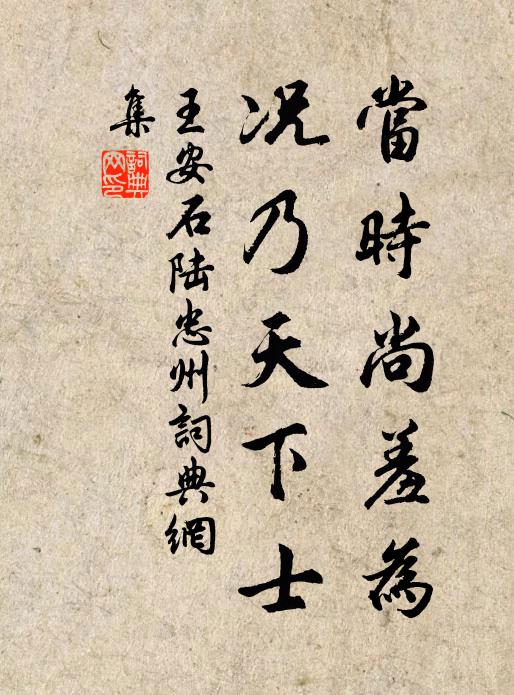 當時尚羞為
況乃天下士
王安石陸忠州詞典網
集
詞典
网印